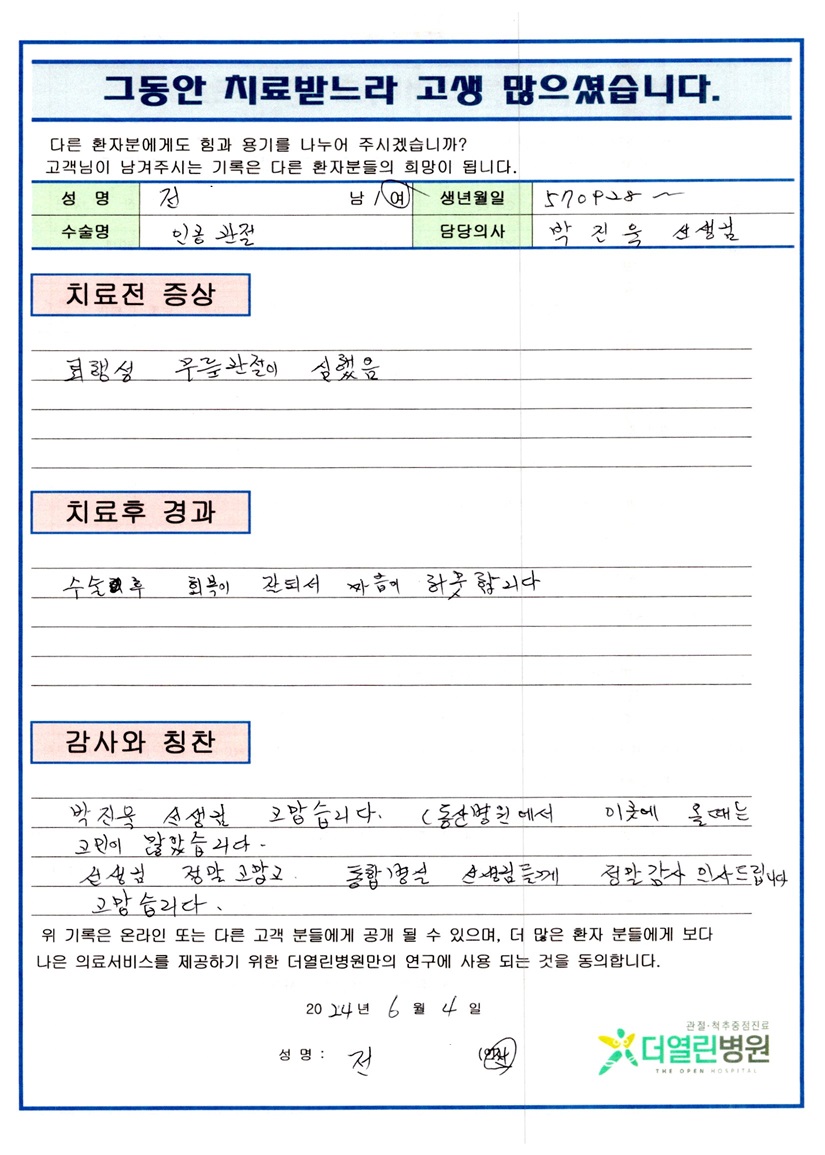 그동안 치료받느라 고생 많으셨습니다.
다른 환자분에게도 힘과 용기를 나누어 주시겠습니까?
고객님이 남겨주시는 기록은 다른 환자분들의 희망이 됩니다.
성 명 전 남 / 여 생년월일 570928 ~
수술명 인공관절 담당의사 박진욱 선생님
치료전 증상
퇴행성 무릎관절이 심했음
치료후 경과
수술 후 회복이 잘되서 마음이 하뭇합니다
감사와 칭찬
박진욱 선생님 고맙습니다. (동산병원에서 이곳에 올때는
고민이 많았습니다.
선생님 정말 고맙고. 통합병실 선생님들게 정말 감사 인사드립니다
고맙습니다.
위 기록은 온라인 또는 다른 고객 분들에게 공개 될 수 있으며, 더 많은 환자 분들에게 보다
나은 의료서비스를 제공하기 위한 더열린병원만의 연구에 사용 되는 것을 동의합니다.
2024년 6월 4일
성 명 : 전
관절·척추중점진료
더열린병원
THE OPEN HOSPITAL